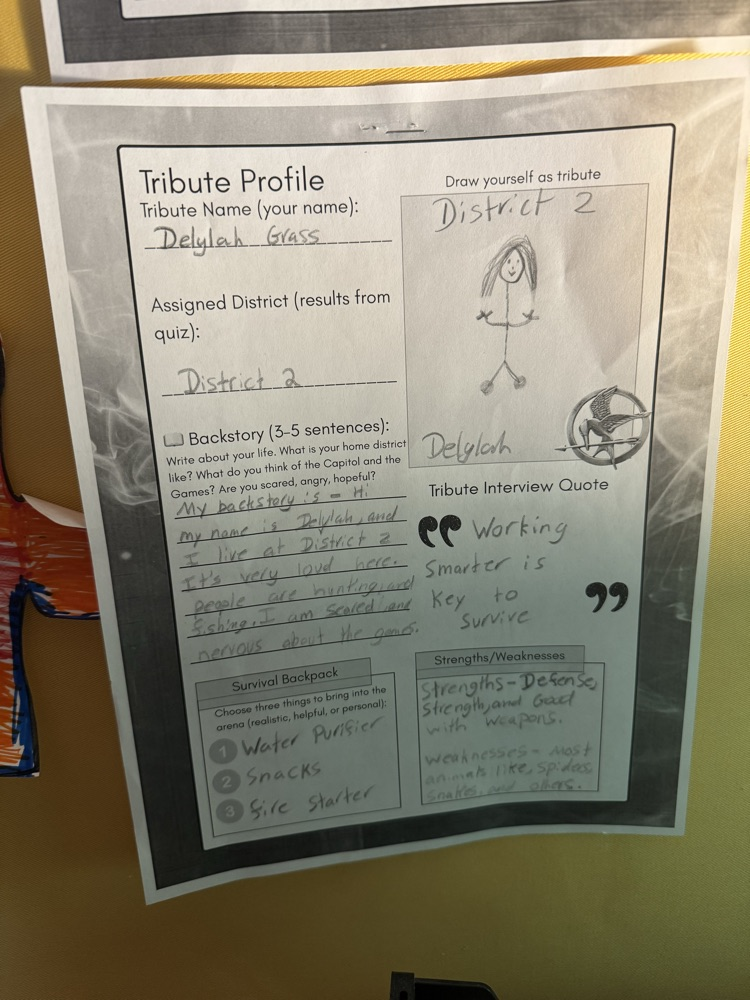 Tribute Profile
Tribute Name (your name):
Delylah Grass
Assigned District (results from
quiz):
District 2
Backstory (3-5 sentences):
Write about your life. What is your home district
like? What do you think of the Capitol and the
Games? Are you scared, angry, hopeful?
My backstory is - Hi
my name is Delylah, and
I live at District 2
It's very loud here.
people are hunting, and
fishing. I am scared and
nervous about the games.
Draw yourself as tribute
District 2
Delylah
Tribute Interview Quote
Working
Smarter is
Key to
Survive
Survival Backpack
Choose three things to bring into the
arena (realistic, helpful, or personal):
1 Water Purifier
2 Snacks
3 fire starter
Strengths/Weaknesses
Strengths - Defense,
Strength, and Good
with weapons.
Weaknesses - Most
animals like, spiders,
snakes, and others.